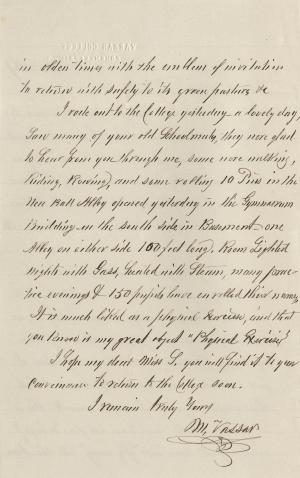 in olden times with the emblem of invitation
to return with safety to its green pasture &c
I rode out to the College yesterday a lovely day,
Saw many of your old Schoolmates, they were glad
to hear from you through me, some were walking,
Riding, Rowing, and some rolling 10 Pins in the
New Ball Alley opened yesterday in the Gymnasium
Building on the south side in Basement one
Alley on either side 100 feet long, Room Lighted
Nights with Gass, heated with Steam, many
practice evenings & 150 pupils have enrolled their names,
It is much liked as a physical Exercise, and that
you know is my great object "Physical Exercise"
I hope my dear Miss L. you will find it to your
convenience to return to the College soon.
I remain truly Yours
M, Vassar